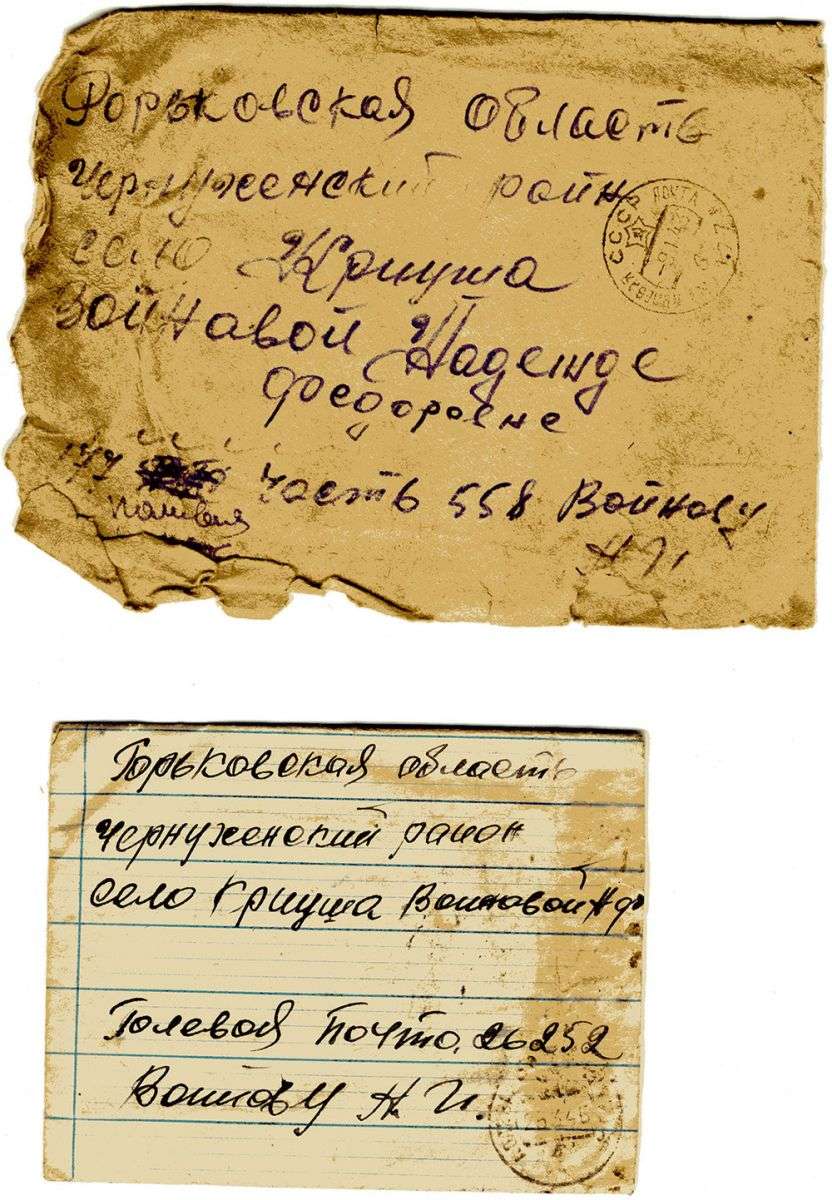 Горьковская область
Чернуженский район
село Криуша
Войновой Надежде
федоровне
часть 558 Войнову
Н И
СССР ПОЧТА
Горьковская область
Чернуженский район
село Криуша Войновой Н ф
Полевая Почта. 26252
Войнову Н. И.